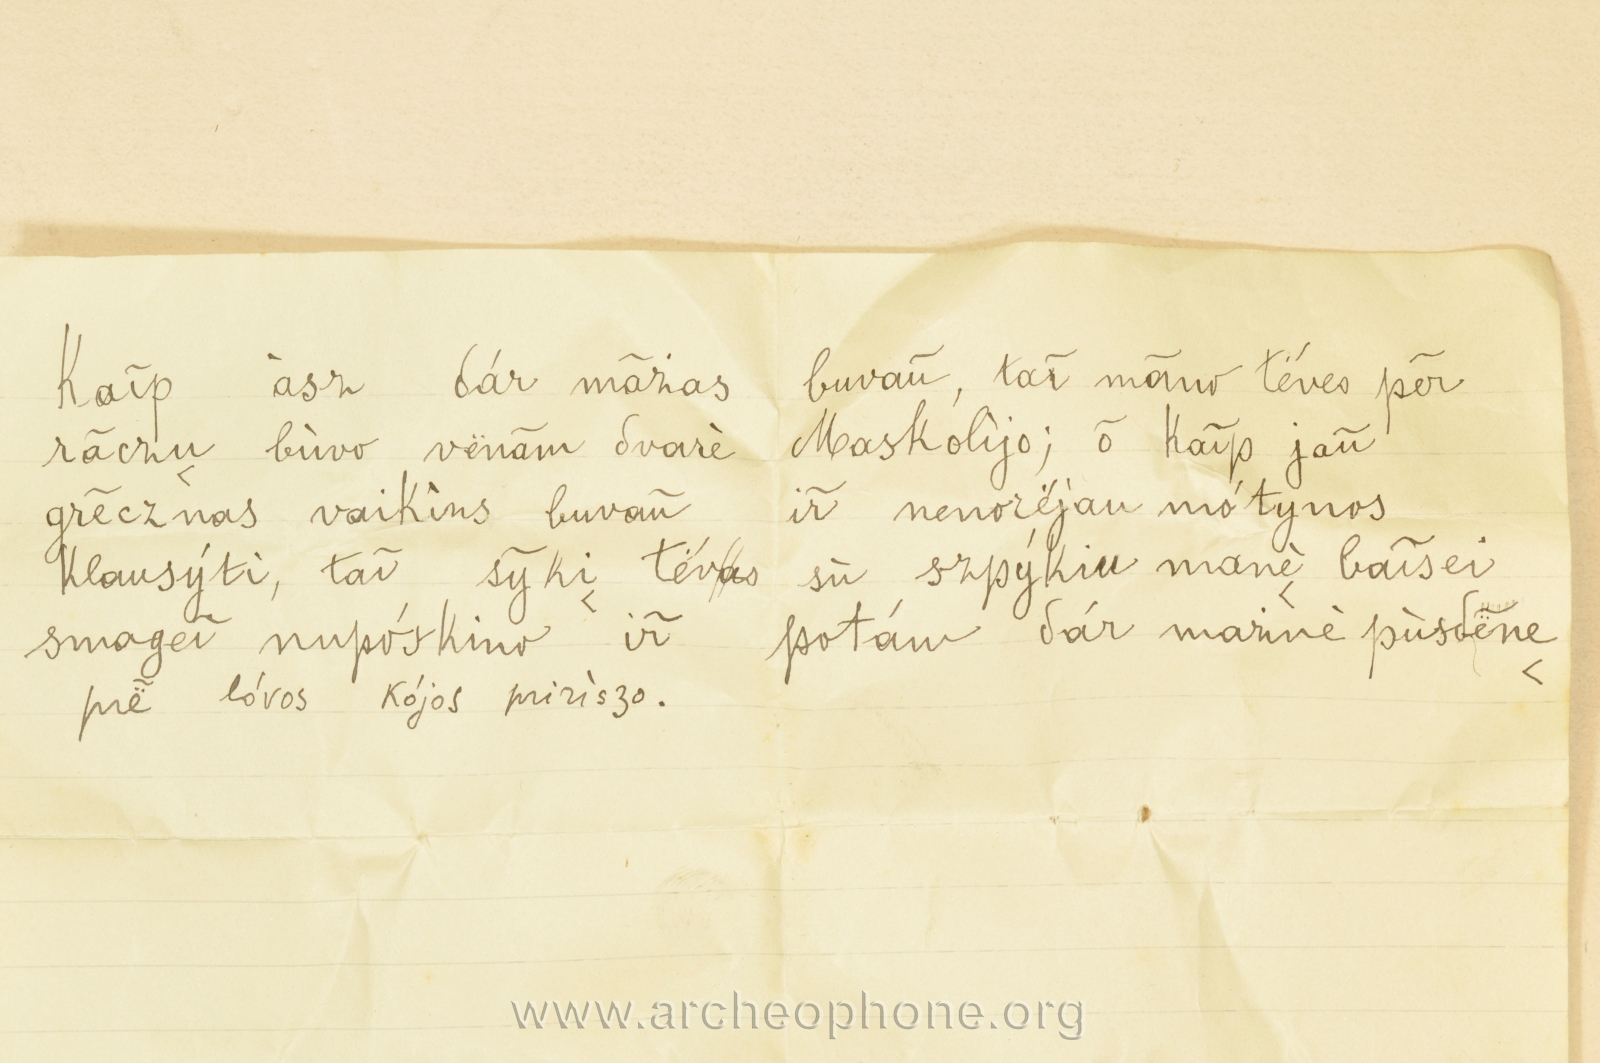 Kaĩp àsz dár mãžas buvaũ, taĩ màno tė́vos pėr
rãczų bùvo vënãm dvarè Maskolìjo; õ kaĩp jaũ
grẽcznas vaikìns buvaũ ir̃ nenorė́jau mótynos
klausýti, taĩ sỹkį tėvas sù szpýkiu manę̀ baĩsei
smageĩ nupóskino ir̃ potám dár mažnè pùsdënę
prë̃ lóvos kójos pririszo.
www.archeophone.org